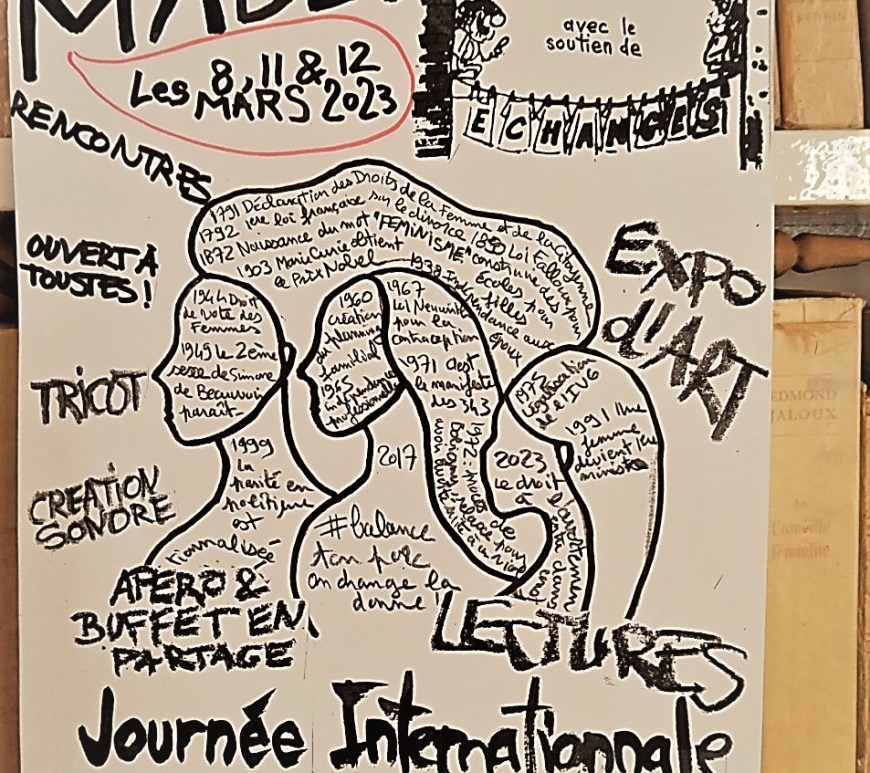 avec le
soutien de
Les 8, 11 & 12
MARS 2023
ECHANGES
RENCONTRES
OUVERT À
TOUSTES !
TRICOT
CREATION
SONORE
EXPO
d'ART
1791 Déclaration des Droits de la Femme et de la Citoyenne
1792 1ère loi française sur le divorce 1850 Loi Falloux pour
1872 Naissance du mot "FEMINISME" construire des
1903 Marie Curie obtient écoles pour
le Prix Nobel filles
1938 Indépendance aux
époux
1944 Droit
de vote des
Femmes
1949 le 2ème
sexe de Simone
de Beauvoir
paraît.
1960
création
du planning
familial
1965
indépendance
professionnelle
1967
Loi Neuwirth
pour la
contraception
1971 C'est
le manifeste
des 343
1972 : procès de
1975
législation
de l'IVG
1991 Une
femme
devient 1er
ministre
1999
la
parité en
politique
est
2017
#balance
ton porc
on change la
donne !
2023
Le droit
à
l'avortement
dans
APERO &
BUFFET EN
PARTAGE
LECTURES
Journée Internationnale
EDMOND
JALOUX